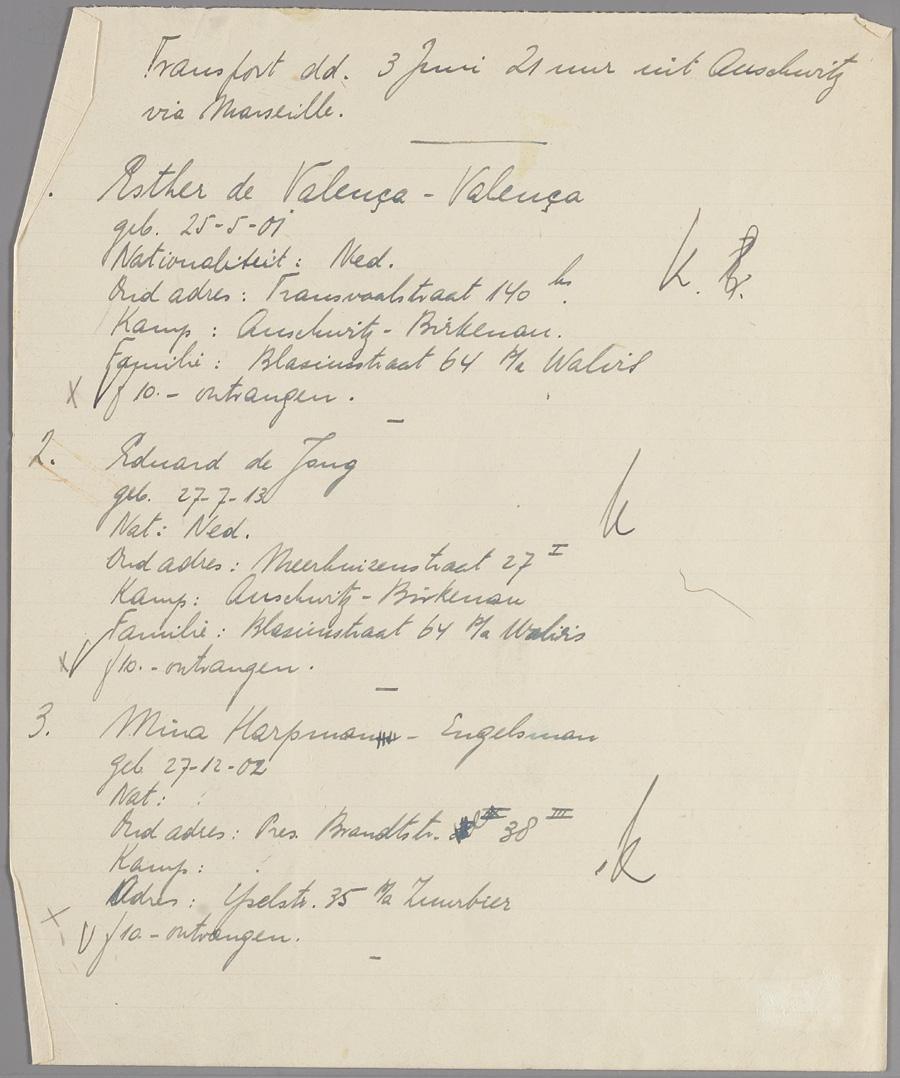 Transport dd. 3 Juni 21 uur uit Auschwitz
via Marseille.
. Esther de Valença - Valença
geb. 25-5-01
Nationaliteit: Ned.
Oud adres: Transvaalstraat 140 hs.
K.
Kamp: Auschwitz - Birkenau.
Familie: Blasiusstraat 64 p/a Walvis
x f 10.- ontvangen.
2. Eduard de Jong
geb. 27-7-13
Nat: Ned.
K
Oud adres: Meerhuizenstraat 27 I
Kamp: Auschwitz - Birkenau
Familie: Blasiusstraat 64 p/a Walvis
x V f 10.- ontvangen.
3. Mina Harpman - Engelsman
geb. 27-12-02
Nat:
Oud adres: Pres. Brandtstr. 38 III
Kamp:
K
Adres: Yselstr. 35 p/a Zuurbier
x V f 10.- ontvangen.